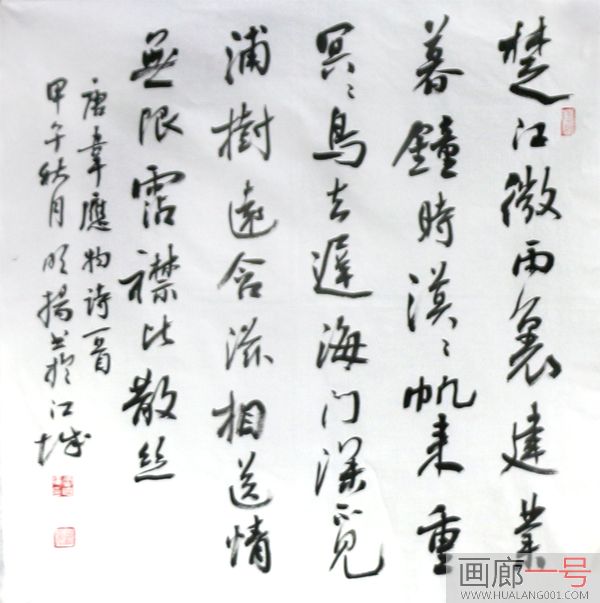 楚江微雨裏建業
暮鐘時漠〻帆来重
冥〻鳥去遲海门深不見
浦樹遠含滋相送情
無限霑襟比散丝
唐韋應物诗一首
甲午秋月明揚书於江城
画廊一号
WWW.HUALANG001.COM